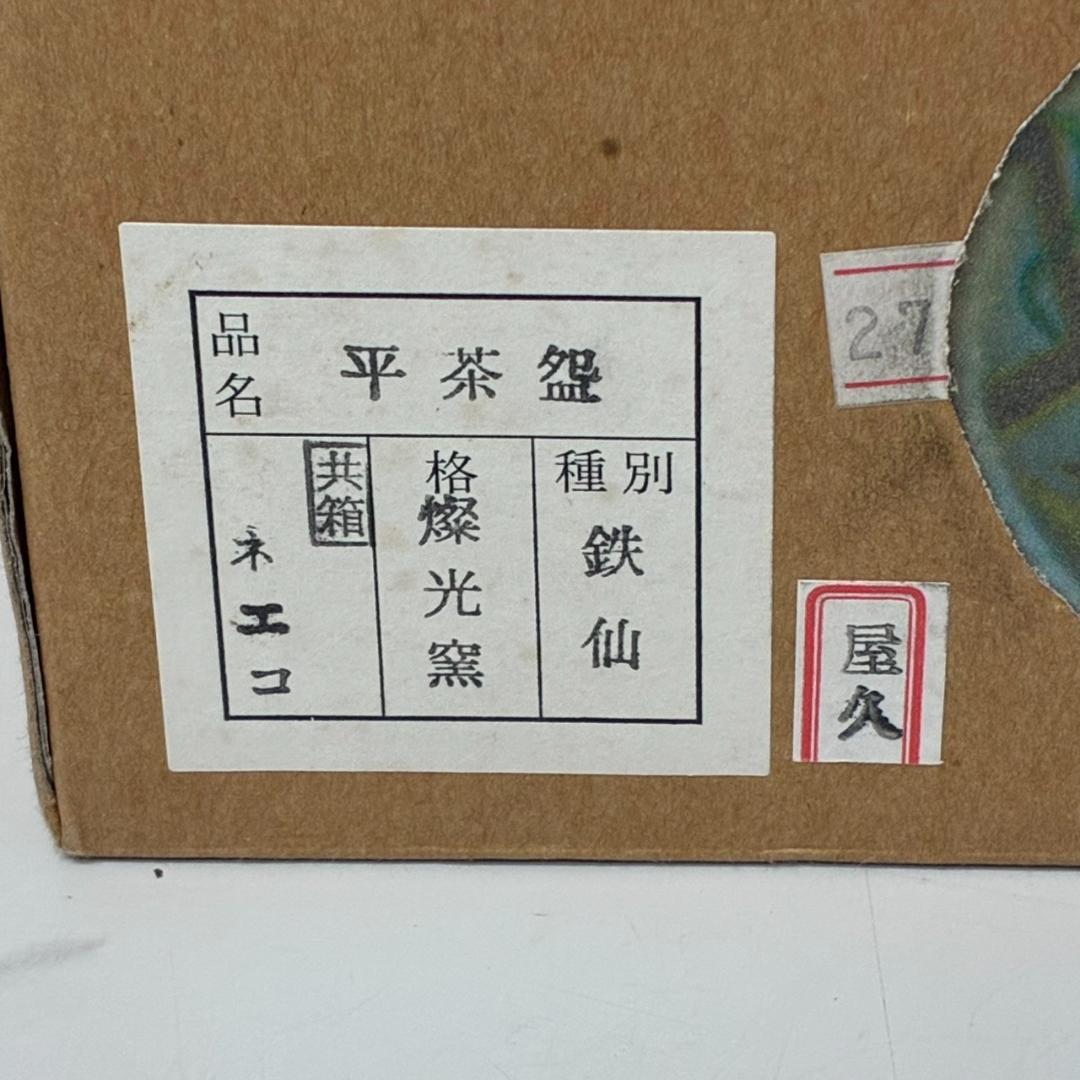 品名
平茶盌
種別
鉄仙
格
燦光窯
共箱
ネエコ
27
屋久